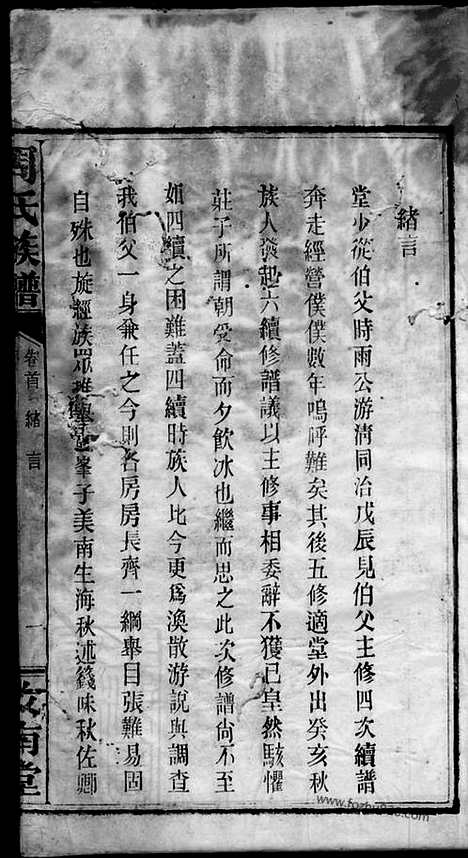 緒言
堂少從伯父時雨公游淸同治戊辰見伯父主修四次續譜
奔走經營僕僕數年嗚呼難矣其後五修適堂外出癸亥秋
族人發起六續修譜議以主修事相委辭不獲已皇然駭懼
莊子所謂朝受命而夕飲冰也繼而思之此次修譜尙不至
如四續之困難蓋四續時族人比今更爲渙散游說與調查
我伯父一身兼任之今則各房房長齊一綱舉目張難易固
自殊也旋經族眾推舉峯子美南生海秋述籛味秋佐卿
周氏族譜
卷首
緒言
一
汝南堂
www.fozhu920.com